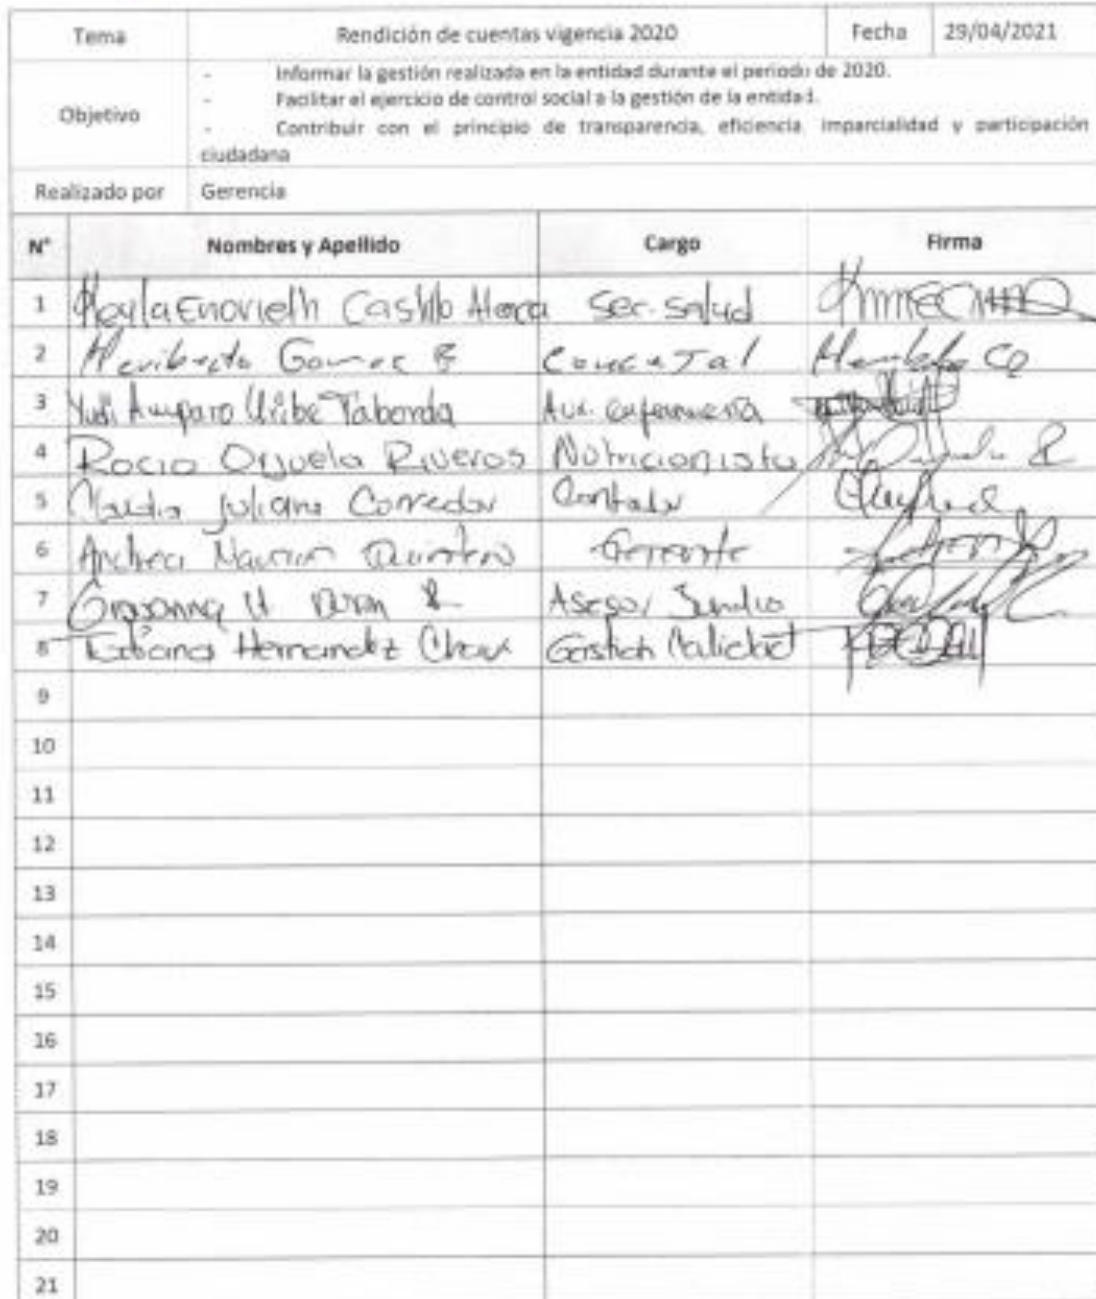 Tema Rendición de cuentas vigencia 2020 Fecha 29/04/2021
Objetivo
- Informar la gestión realizada en la entidad durante el periodo de 2020.
- Facilitar el ejercicio de control social a la gestión de la entidad.
- Contribuir con el principio de transparencia, eficiencia imparcialidad y participación
ciudadana
Realizado por Gerencia
N° Nombres y Apellido Cargo Firma
1 Castillo Sec. Salud
2 Heriberto Gomez Concejal
3 Yudi Amparo Uribe Taborda Aux. enfermería
4 Rocio Orjuela Riveros Nutricionista
5 Claudia Juliana Corredor Contador
6 Andrea Quintero Gerente
7 Asesor
8 Tatiana Hernandez Gestion Calidad
9
10
11
12
13
14
15
16
17
18
19
20
21